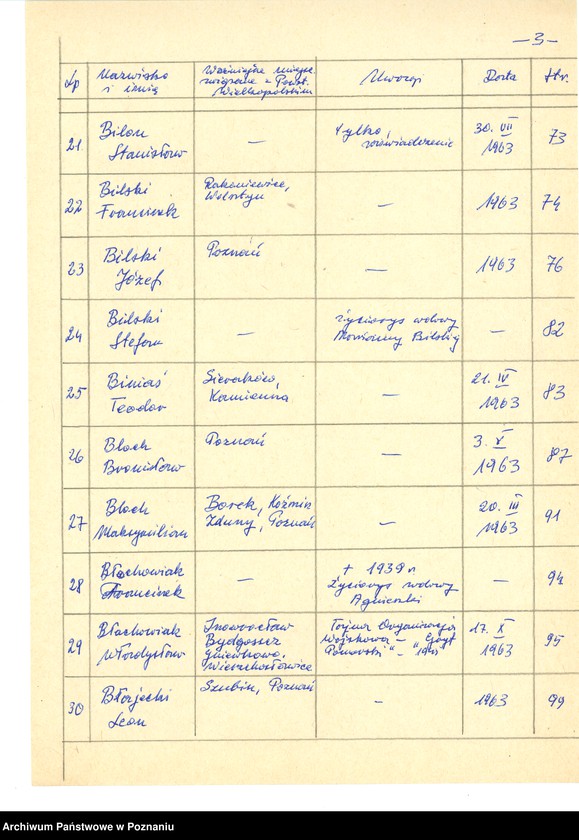 — 3 —
Lp Nazwisko i imię Ważniejsze miejsc. związane z Powst. Wielkopolskim Uwagi Data Str.
21 Bilon Stanisław — tylko zaświadczenie 30. VII 1963 73
22 Bilski Franciszek Rakoniewice, Wolsztyn — 1963 74
23 Bilski Józef Poznań — 1963 76
24 Bilski Stefan — życiorys wdowy Marianny Bilskiej — 82
25 Biniaś Teodor Sieraków, Kamienna — 21. IV 1963 83
26 Bloch Bronisław Poznań — 3. V 1963 87
27 Bloch Maksymilian Borek, Koźmin Zduny, Poznań — 20. III 1963 91
28 Błachowiak Franciszek — + 1939 r. Życiorys wdowy Agnieszki — 94
29 Błachowiak Władysław Inowrocław Bydgoszcz Gniewkowo, Wierzchosławice Tajna Organizacja Wojskowa - "Gryf Pomorski" - 17. X 1963 95
30 Leon Szubin, Poznań — 1963 99
Archiwum Państwowe w Poznaniu